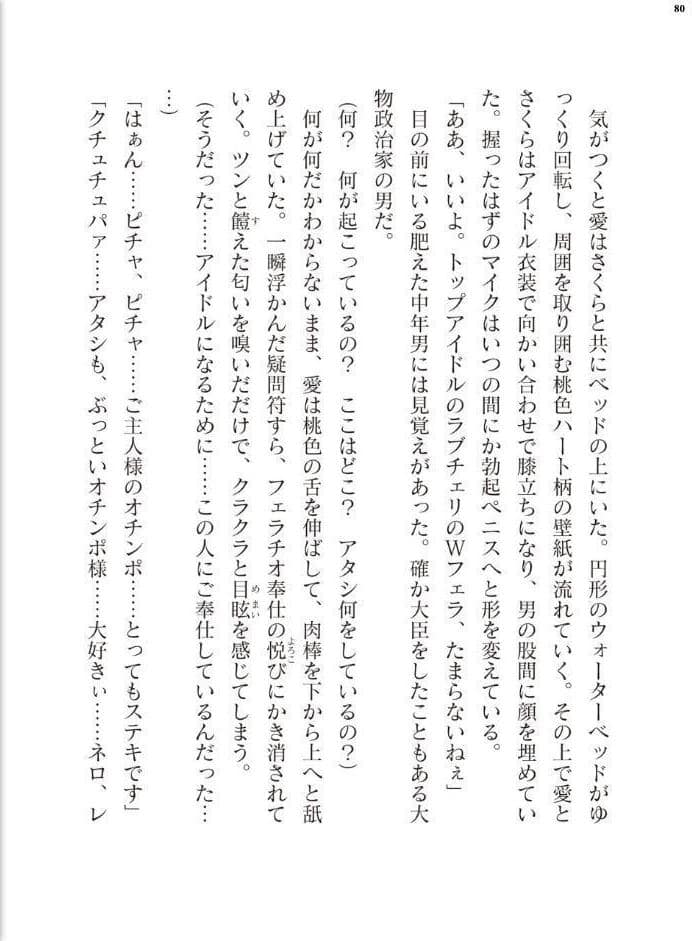 80
気がつくと愛はさくらと共にベッドの上にいた。円形のウォーターベッドがゆ
っくり回転し、周囲を取り囲む桃色ハート柄の壁紙が流れていく。その上で愛と
さくらはアイドル衣装で向かい合わせで膝立ちになり、男の股間に顔を埋めてい
た。握ったはずのマイクはいつの間にか勃起ペニスへと形を変えている。
「ああ、いいよ。トップアイドルのラブチェリのWフェラ、たまらないねぇ」
目の前にいる肥えた中年男には見覚えがあった。確か大臣をしたこともある大
物政治家の男だ。
(何? 何が起こっているの? ここはどこ? アタシ何をしているの?)
何が何だかわからないまま、愛は桃色の舌を伸ばして、肉棒を下から上へと舐
め上げていた。一瞬浮かんだ疑問符すら、フェラチオ奉仕の悦びにかき消されて
いく。ツンと饐えた匂いを嗅いだだけで、クラクラと目眩を感じてしまう。
(そうだった……アイドルになるために……この人にご奉仕しているんだった…
…)
「はぁん……ピチャ、ピチャ……ご主人様のオチンポ……とってもステキです」
「クチュチュパァ……アタシも、ぶっといオチンポ様……大好きぃ……ネロ、レ